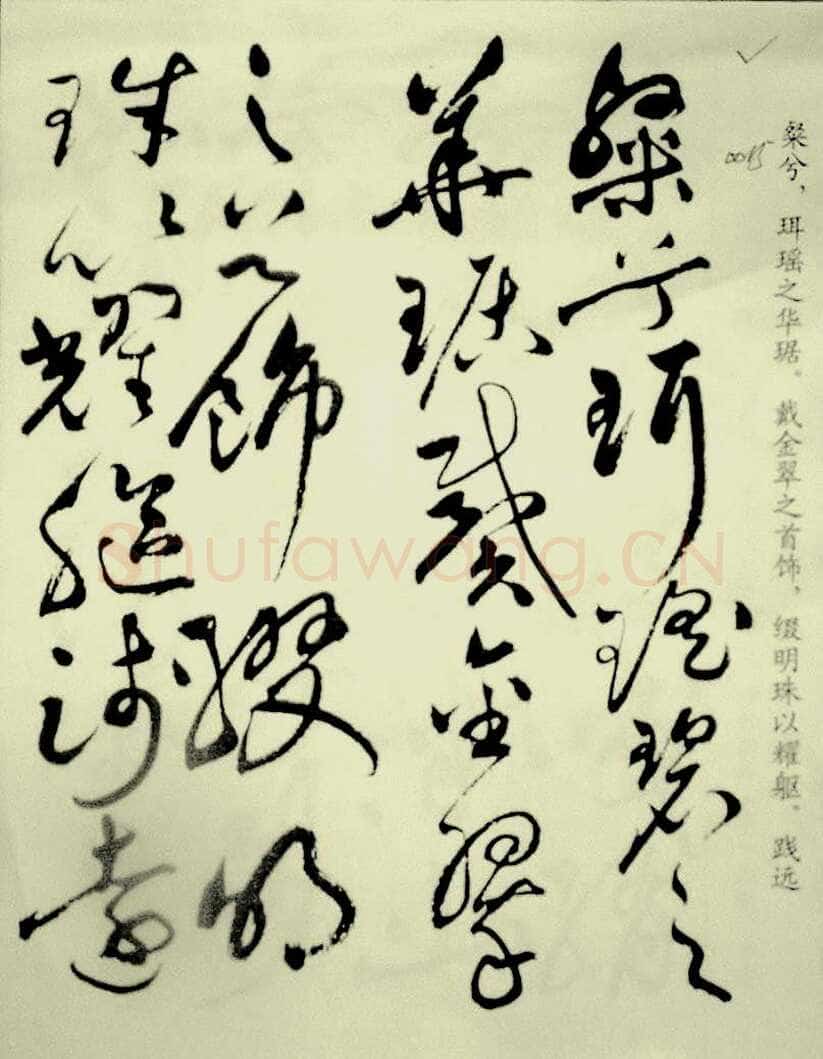 粲兮，珥瑶之华琚。戴金翠之首饰，缀明珠以耀躯。践远
粲兮珥瑶碧之
華琚戴金翠
之首飾綴明
珠以耀軀踐遠
Shufawang.CN